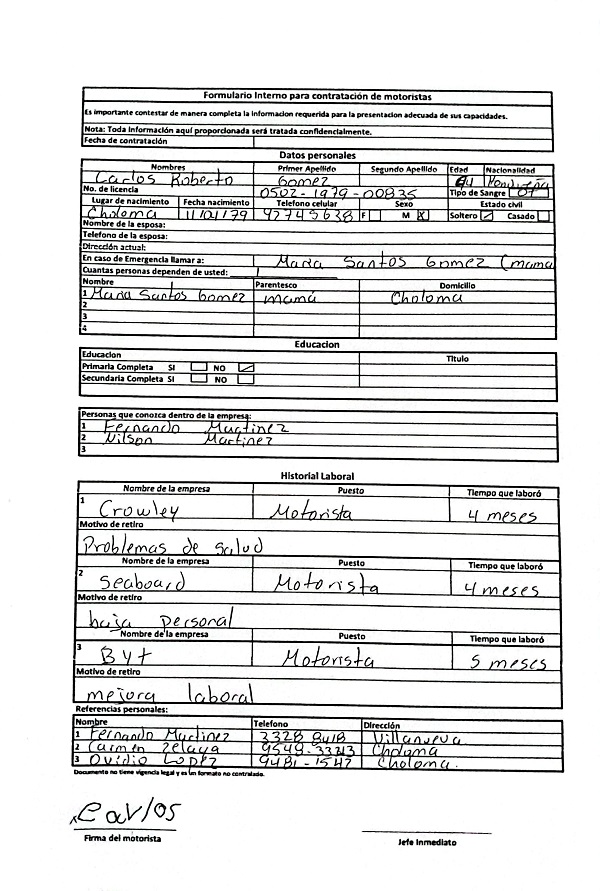 Formulario Interno para contratación de motoristas
Es importante contestar de manera completa la informacion requerida para la presentacion adecuada de sus capacidades.
Nota: Toda Información aquí proporcionada será tratada confidencialmente.
Fecha de contratación
Datos personales
Nombres Primer Apellido Segundo Apellido Edad Nacionalidad
Carlos Roberto Gomez
No. de licencia 0502-1979-00835 Tipo de Sangre
Lugar de nacimiento Fecha nacimiento Telefono celular Sexo Estado civil
Choloma 97745638 F M X Soltero Casado
Nombre de la esposa:
Telefono de la esposa:
Dirección actual:
En caso de Emergencia llamar a: Maria Santos Gomez (mama
Cuantas personas dependen de usted: 1
Nombre Parentesco Domicilio
1 Maria Santos Gomez mamá Choloma
2
3
4
Educacion
Educacion Titulo
Primaria Completa SI NO
Secundaria Completa SI NO
Personas que conozca dentro de la empresa:
1 Fernando Martinez
2 Wilson Martinez
3
Historial Laboral
Nombre de la empresa Puesto Tiempo que laboró
1 Crowley Motorista 4 meses
Motivo de retiro
Problemas de salud
Nombre de la empresa Puesto Tiempo que laboró
2 Seaboard Motorista 4 meses
Motivo de retiro
baja personal
Nombre de la empresa Puesto Tiempo que laboró
3 Byt Motorista 5 meses
Motivo de retiro
mejora laboral
Referencias personales:
Nombre Telefono Dirección
1 Fernando Martinez 3328 8418 Villanueva
2 Carmen Zelaya Choloma
3 Ovidio Lopez 9481-1547 Choloma.
Documento no tiene vigencia legal y es un formato no controlado.
Carlos
Firma del motorista Jefe Inmediato